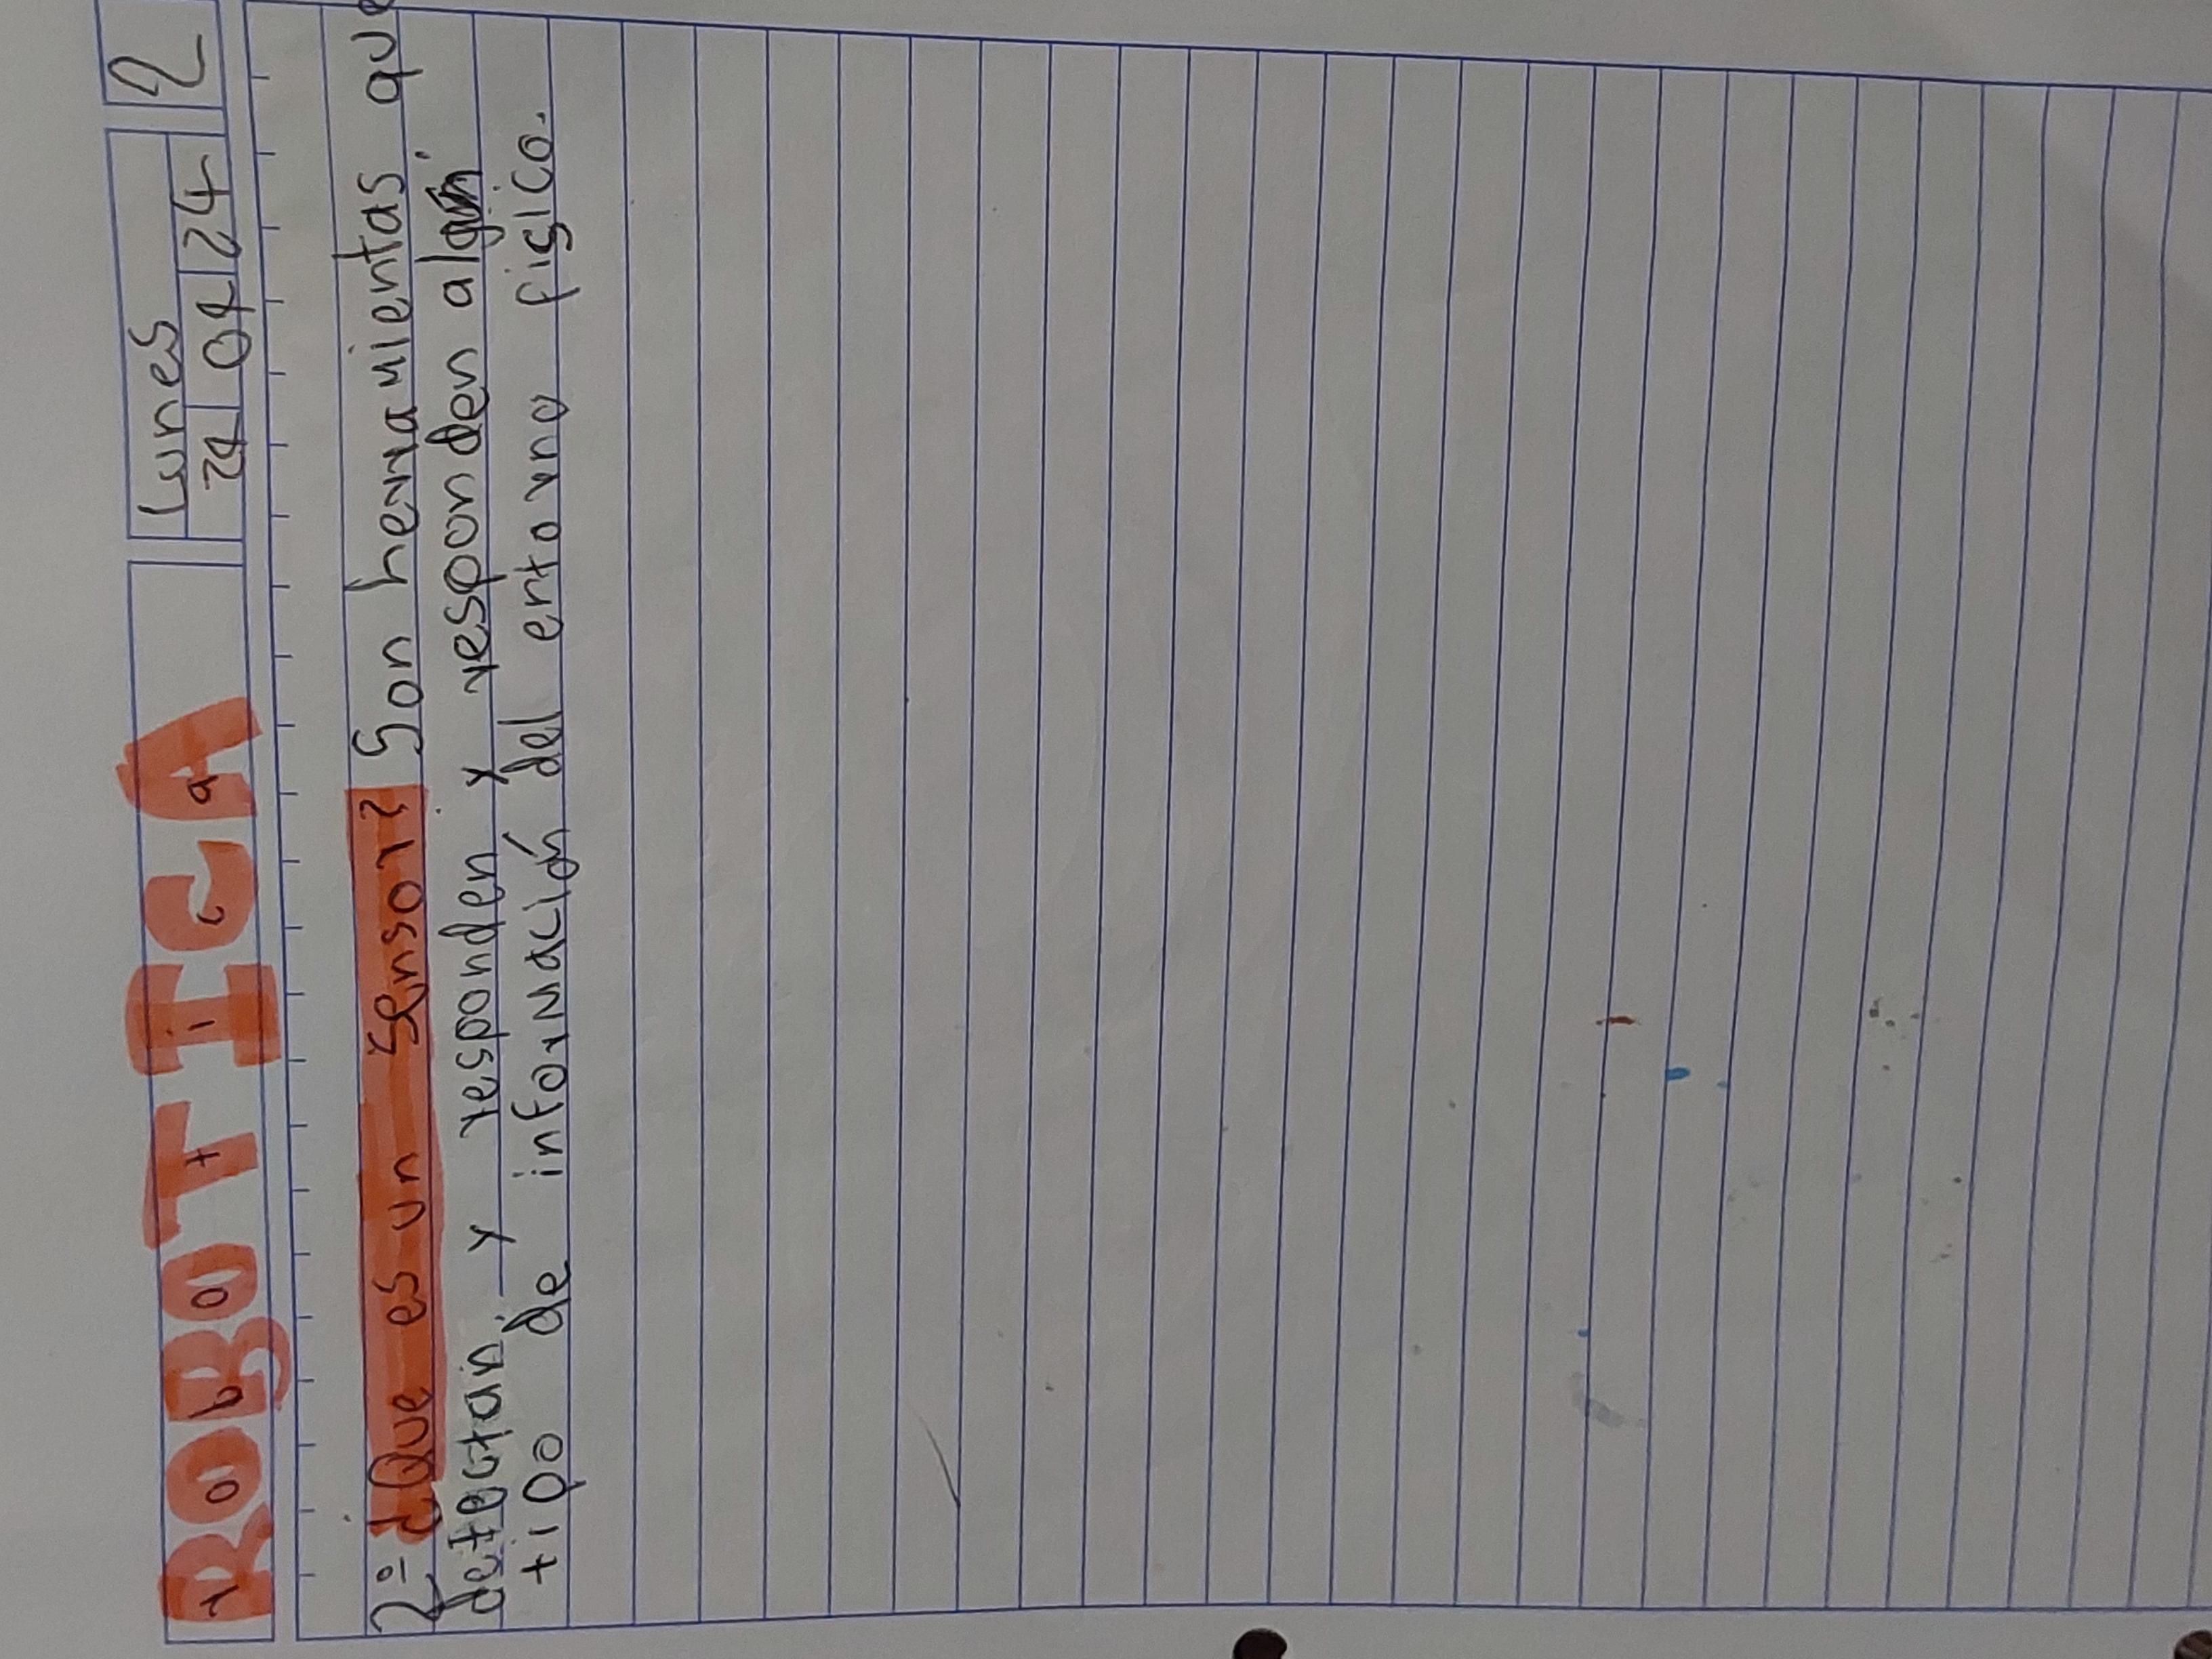 ROBOTICA
robotica
Lunes
2
24
24
2º ¿Que es un Sensor? Son herramientas que
detectan y responden y responden algún
tipo de información del entorno fisico.